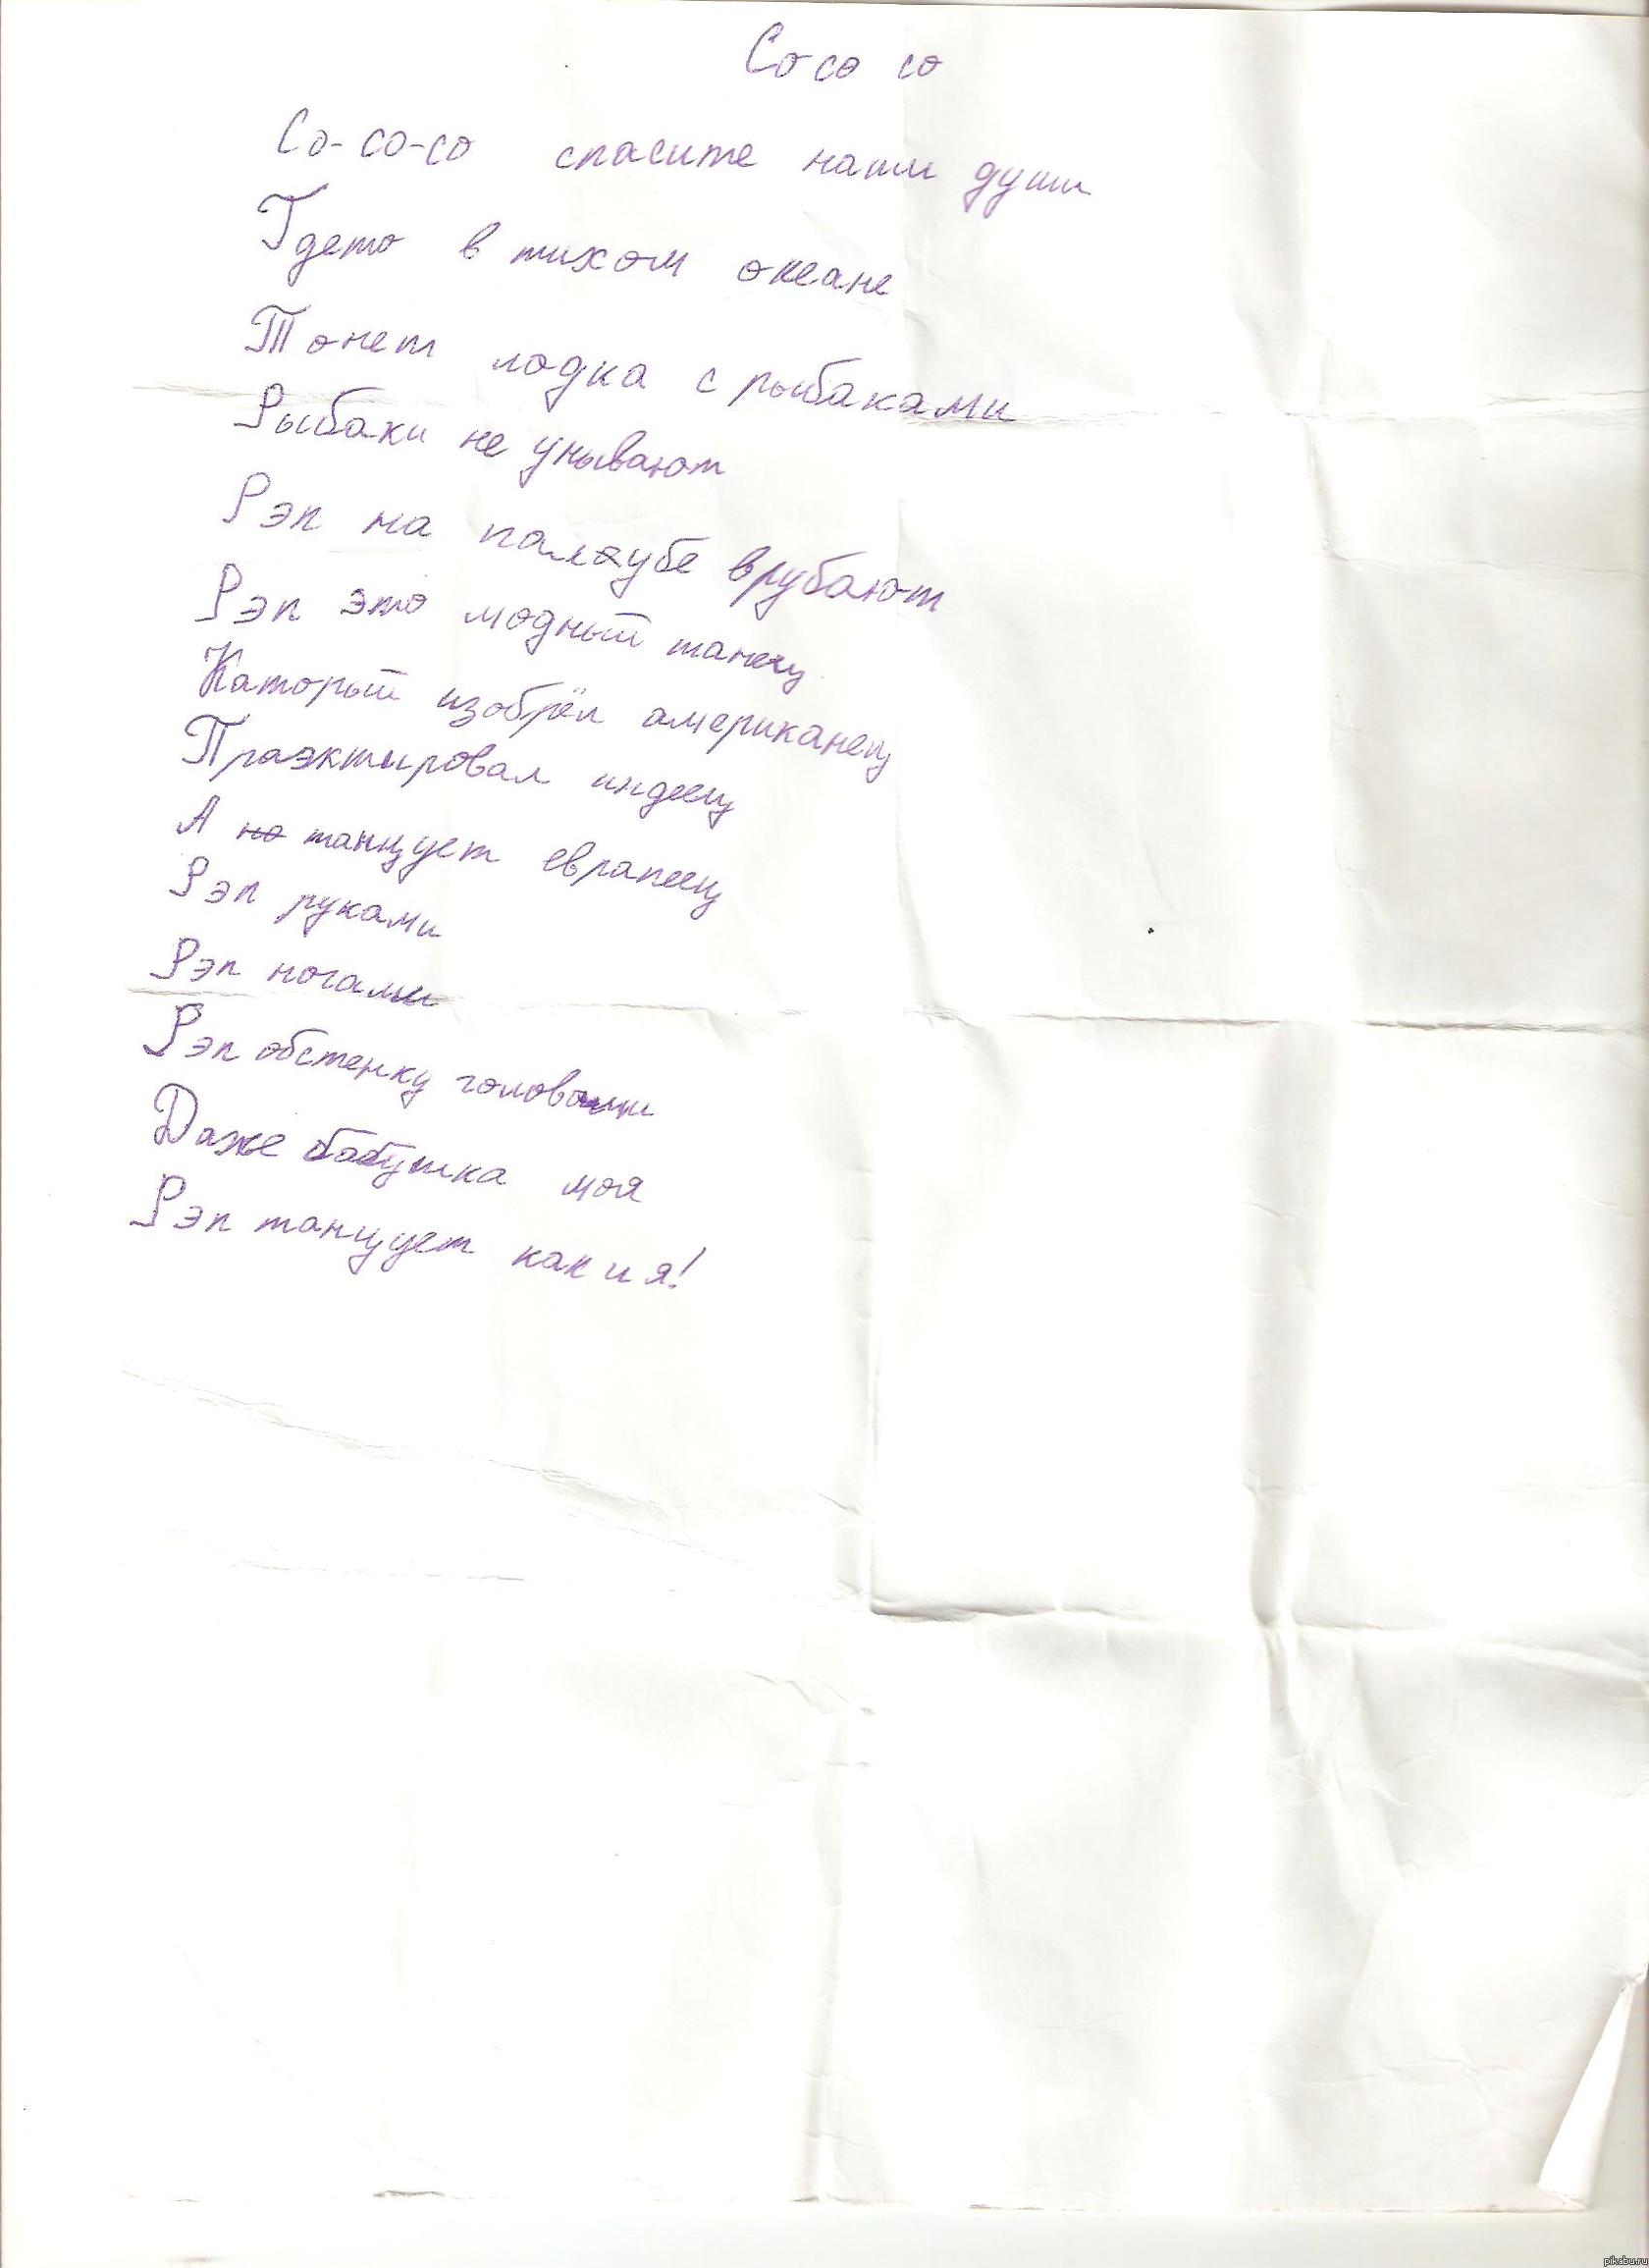 Со со со
Со-со-со спасите наши души
Гдето в тихом океане
Тонет лодка с рыбаками
Рыбаки не унывают
Рэп на палаубе врубают
Рэп это модный танец
Каторый изобрёл американец
Праэктировал индеец
А но танцует еврапеец
Рэп руками
Рэп ногами
Рэп обстенку головами
Даже бабушка моя
Рэп танцует как и я!
pikabu.ru